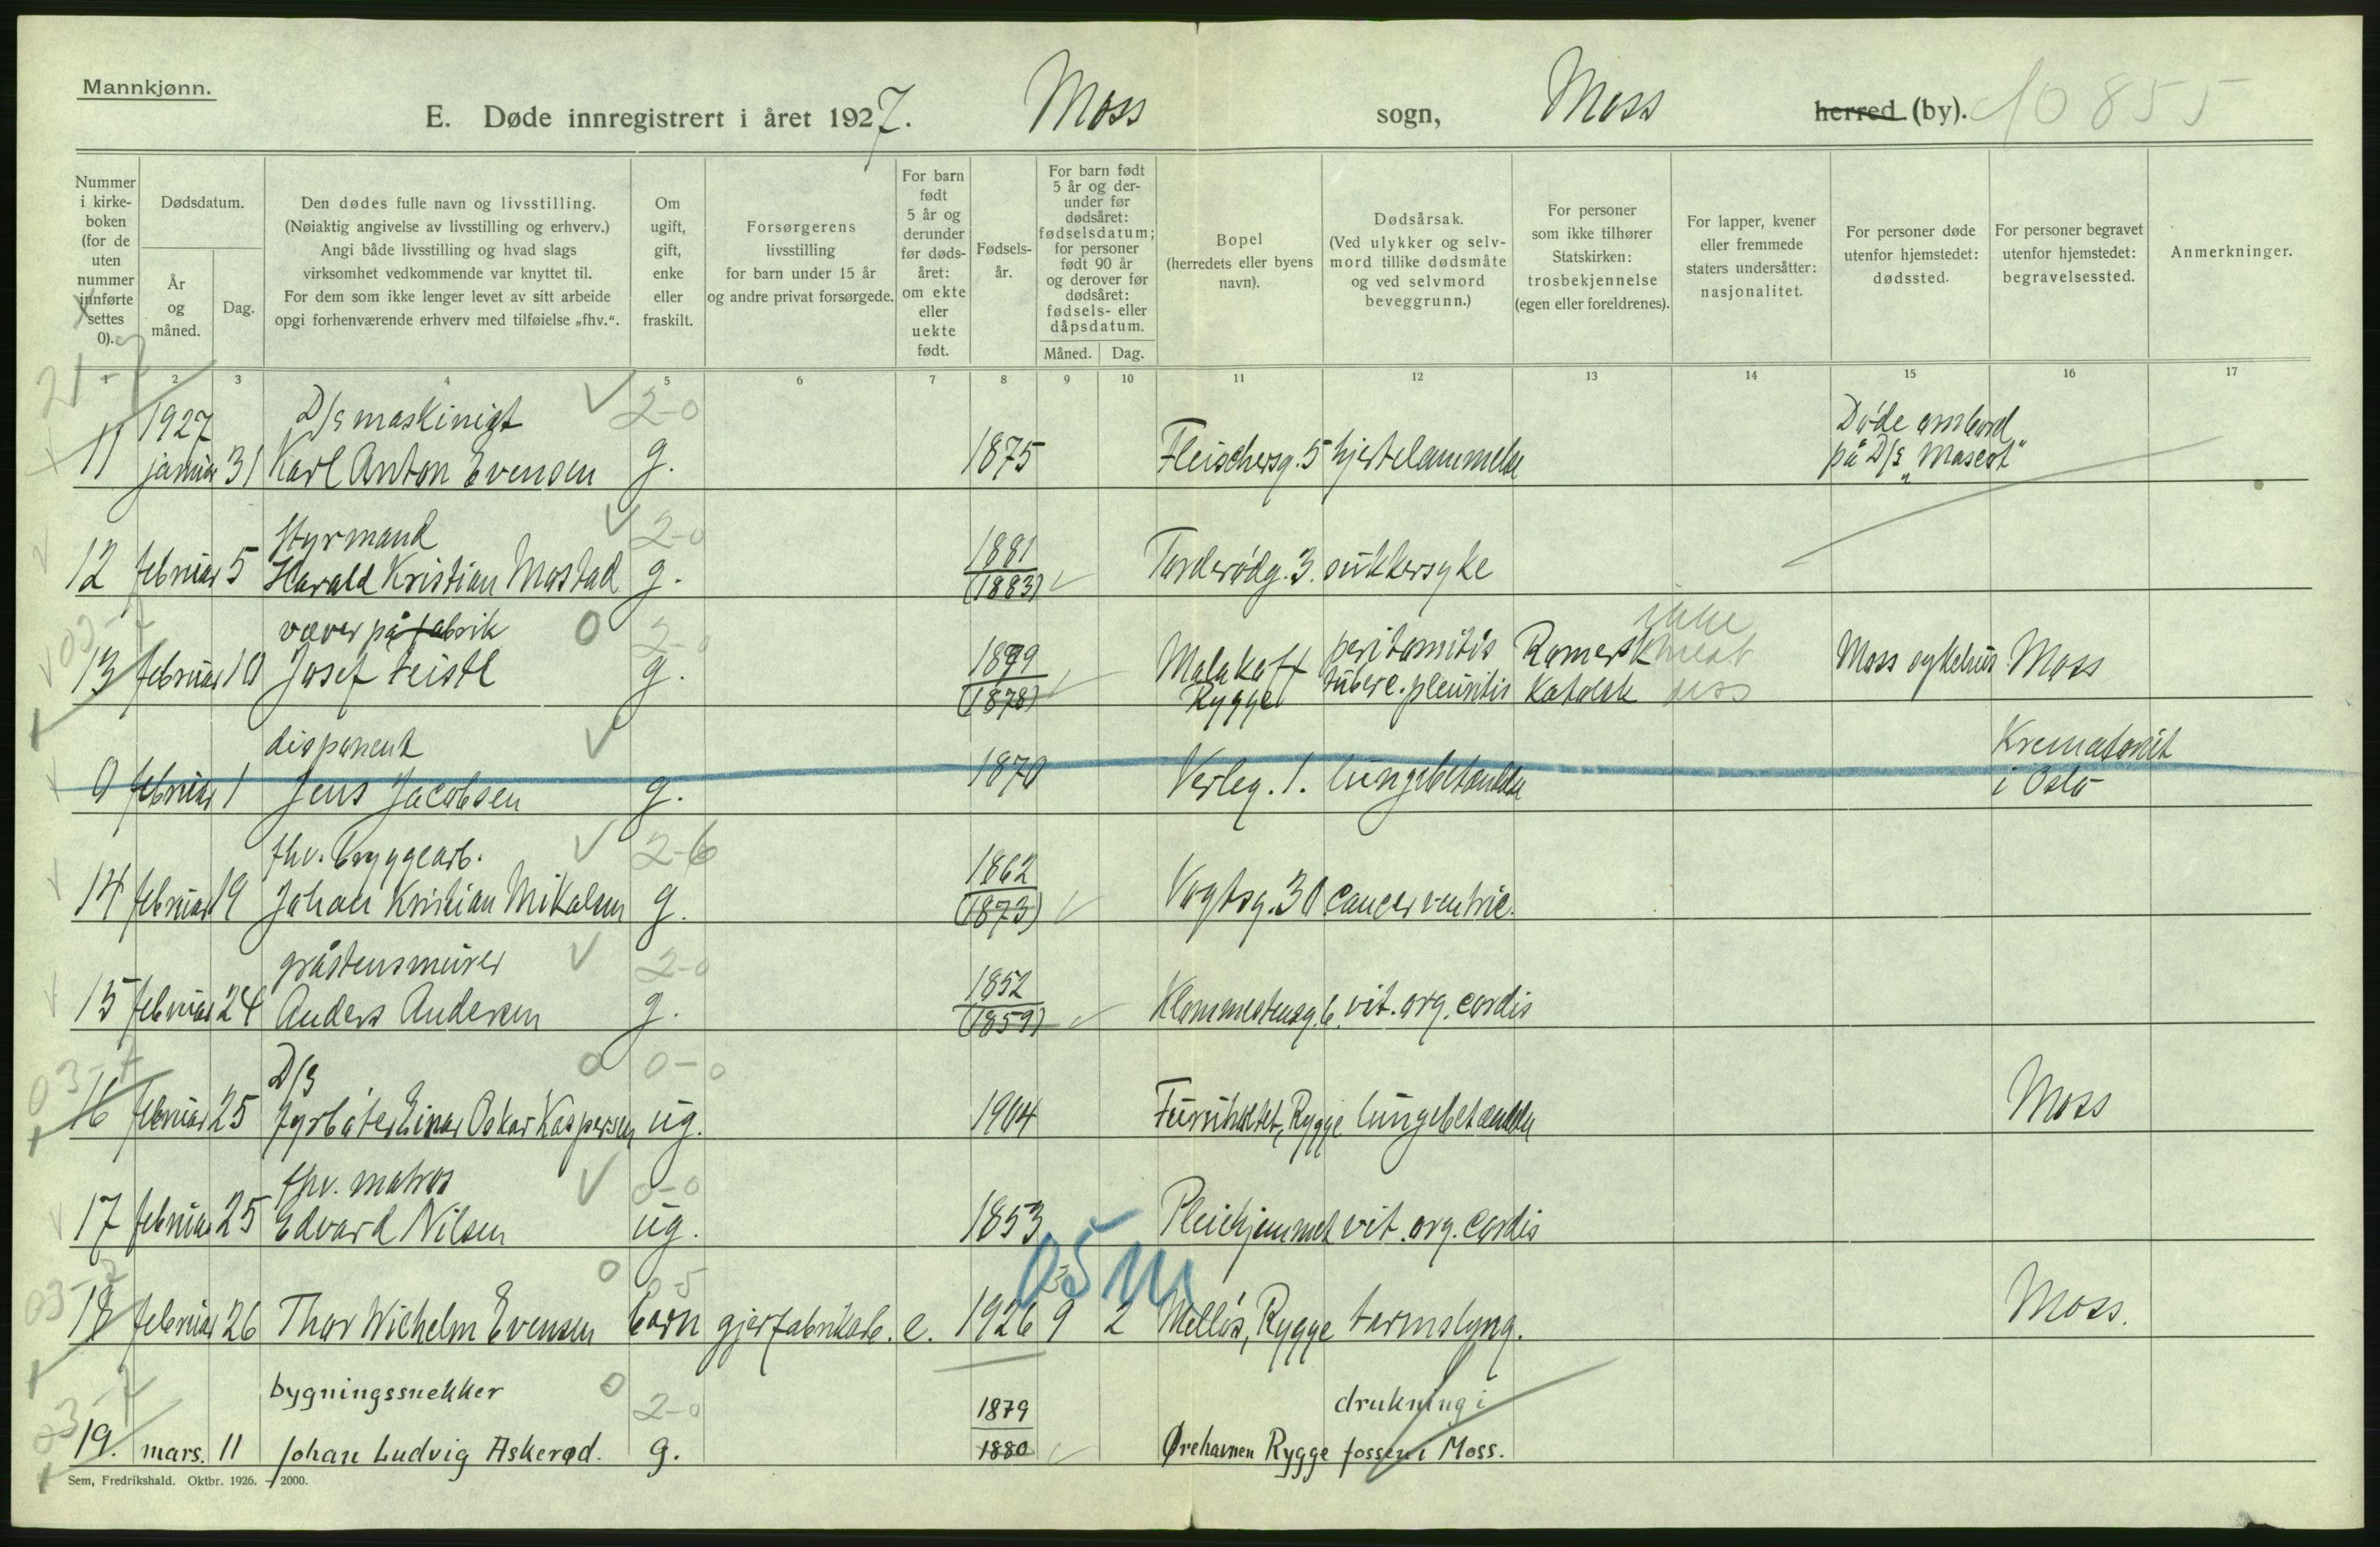 Mannkjønn.
E. Døde innregistrert i året 1927. Moss sogn, Moss herred (by). 10855
Nummer i kirke- boken (for de uten nummer innførte settes 0).
Dødsdatum.
År og måned.
Dag.
Den dødes fulle navn og livsstilling.
(Nøiaktig angivelse av livsstilling og erhverv.)
Angi både livsstilling og hvad slags
virksomhet vedkommende var knyttet til.
For dem som ikke lenger levet av sitt arbeide
opgi forhenværende erhverv med tilføielse „fhv.“.
Om ugift, gift, enke eller fraskilt.
Forsørgerens
livsstilling
for barn under 15 år
og andre privat forsørgede.
For barn født 5 år og derunder før døds- året: om ekte eller uekte født.
Fødsels- år.
For barn født 5 år og der- under før dødsåret: fødselsdatum; for personer født 90 år og derover før dødsåret: fødsels- eller dåpsdatum.
Måned. Dag.
Bopel
(herredets eller byens
navn).
Dødsårsak.
(Ved ulykker og selv-
mord tillike dødsmåte
og ved selvmord
beveggrunn.)
For personer
som ikke tilhører
Statskirken:
trosbekjennelse
(egen eller foreldrenes).
For lapper, kvener
eller fremmede
staters undersåtter:
nasjonalitet.
For personer døde
utenfor hjemstedet:
dødssted.
For personer begravet
utenfor hjemstedet:
begravelsessted.
Anmerkninger.
1 2 3 4 5 6 7 8 9 10 11 12 13 14 15 16 17
21-7
1927 D/s maskinist 2-0 Døde ombord
11 januar 31 Karl Anton Evensen g. 1875 Fleischersg. 5 hjertelammelse på D/s „Mascot“
styrmand 2-0 1881
12 februar 5 Harald Kristian Mostad g. (1883) Tarderødg. 3. sukkersyke
03-7 væver på fabrik 0 2-0 1899 Malakoff peritonitis Romersk ikke
13 februar 10 Josef Feistl g. (1878) Rygge tuberc. pleuritis Katolsk Moss sykehus. Moss
disponent Krematoriet
0 februar 1 Jens Jacobsen g. 1870 Verleg. 1. lungebetændelse i Oslo
fhv. bryggearb. 2-6 1862
14 februar 19 Johan Kristian Mikalsen g. (1873) Vogtsg. 30 cancer ventric.
gråstensmurer 2-0 1852
15 februar 24 Anders Andersen g. (1859) Klommestensg. 6. vit. org. cordis
03-7 D/s 0 0-0
16 februar 25 fyrbøter Einar Oskar Kaspersen ug. 1904 Rygge lungebetændelse Moss
fhv. matros 0-0
17 februar 25 Edvard Nilsen ug. 1853 Pleiehjemmet vit. org. cordis
03-7 0 0-5 05 m
18 februar 26 Thor Wilhelm Evensen barn gjærfabrikarb. e. 1926 9 2 Melløs, Rygge tarmslyng. Moss.
03-7 bygningssnekker 0 2-0 1879 drukning i
19. mars. 11 Johan Ludvig Askerød. g. 1880 Ørehavnen Rygge fossen i Moss.
Sem, Fredrikshald. Oktbr. 1926. – 2000.